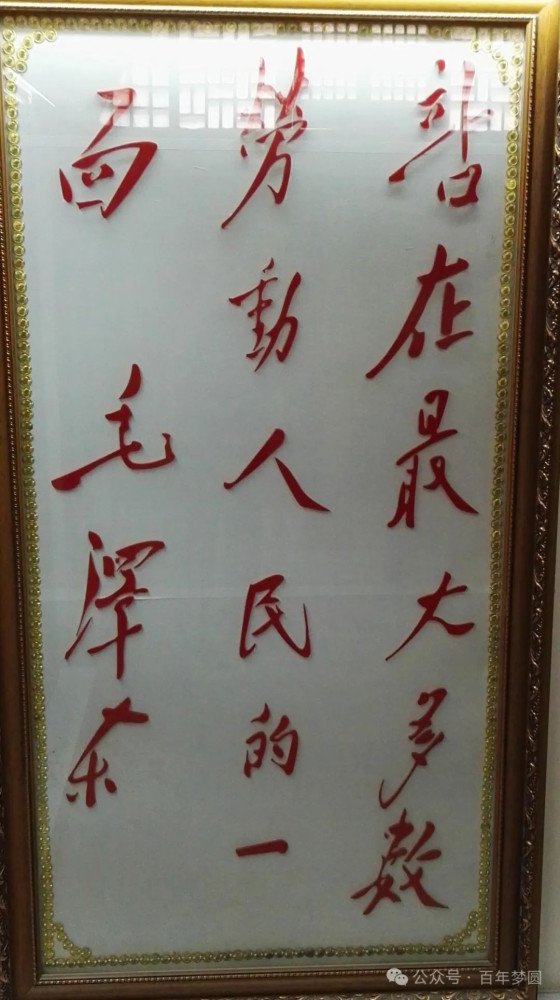 站在最大多数
劳動人民的一
面 毛澤东
公众号 · 百年梦圆